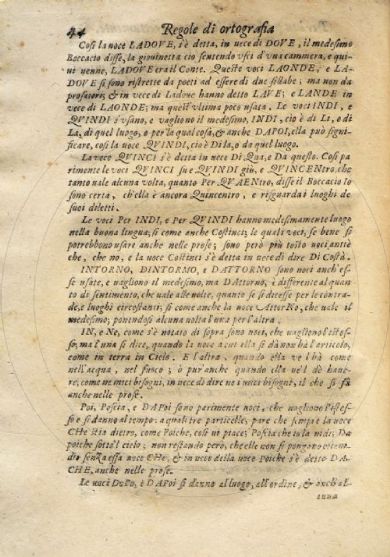 44 Regole di ortografia
Così la uoce LADOVE, s'è detta, in uece di DOVE, il medesimo
Boccacio disse, la giouinetta ciò sentendo uscì d'una cammera, e qui-
ui uenne, LADOVE era il Conte. Queste uoci LAONDE, e LA-
DOVE si sono ristrette da poeti ad essere di due sillabe; ma non da
prosatori; & in uece di Ladoue hanno detto LAVE; e LANDE in
uece di LAONDE; ma quest'ultima poco usata. Le uoci INDI, e
QVINDI s'usano, e uagliono il medesimo, INDI, cio è di Là, o di
Là, di quel luogo, o per la qual cosa, & anche DAPOI, ella può signi-
ficare, così la uoce QVINDI, cio è Di là, o da quel luogo.
La uoce QVINCI s'è detta in uece Di Qua, e Da questo. Così pa-
rimente le uoci QVINCI sù e QVINDI giù, e QVINCENtro, che
tanto uale alcuna uolta, quanto Per QVAENtro, disse il Boccacio Io
sono certa, ch'ella è ancora Quincentro, e risguarda i luoghi de
suoi diletti.
Le uoci Per INDI, e Per QVINDI hanno medesimamente luogo
nella buona lingua, si come anche Costinci; le quali uoci, se bene si
potrebbono usare anche nelle prose; sono però più tosto uoci antiche,
che, no, e la uoce Costinci s'è detta in uece di dire Di Costà.
INTORNO, DINTORNO, e DATTORNO sono uoci anch'es-
se usate, e uagliono il medesimo, ma DAttorno, è differente alquan-
to di sentimento, che uale alle uolte, quanto se si dicesse per le contra-
de, e luoghi circostanti; si come anche la uoce ATtorNo, che uale il
medesimo; ponendosi alcuna uolta l'una per l'altra.
IN, e Ne, come s'è notato di sopra sono uoci, che uagliono l'istes-
so, ma l'una si dice, quando la uoce a cui ella si dà non hà l'articolo,
come in terra in Cielo. E l'altra, quando ella ue l'hà come
nell'acqua, nel fuoco; ò pur'anche quando ella ue'l dè haue-
re, come ne miei bisogni, in uece di dire ne i miei bisogni, il che si fà
anche nelle prose.
Poi, Poscia, e DAPoi sono parimente uoci, che uagliono l'istes-
so e si danno al tempo: a quali tre particelle, pare che sempre la uoce
CHe stia dietro, come Poiche, così ui piace; Poscia che io la uidi; Da
poiche sott'il cielo; non restando però, che elle non si pongano
senza essa uoce CHe, & in uece della uoce Poiche s'è detto DA-
CHE, anche nelle prose.
Le uoci DoPo, e DAPoi si danno al luogo, all'ordine, & anch'al-
cuna